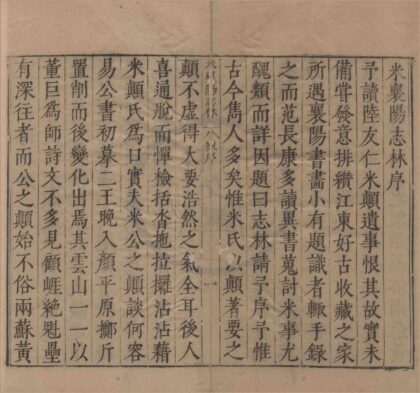 米襄陽志林序
予讀陸友仁米顛遺事恨其故實未
備嘗發意排纘江東好古收藏之家
所遇襄陽書畫小有題識者輙手錄
之而范長康多讀異書蒐討米事尤
醜類而詳因題曰志林請予序予惟
古今雋人多矣惟米氏以顛著要之
顛不虛得大要浩然之氣全耳後人
喜通脫而憚檢括沓拖拉擺沾沾藉
米顛氏爲口實夫米公之顛談何容
易公書初摹二王晚入顏平原擲斤
置削而後變化出焉其雲山一一以
董巨爲師詩文不多見顧崕絶魁壘
有深往者而公之顛始不俗兩蘇黃